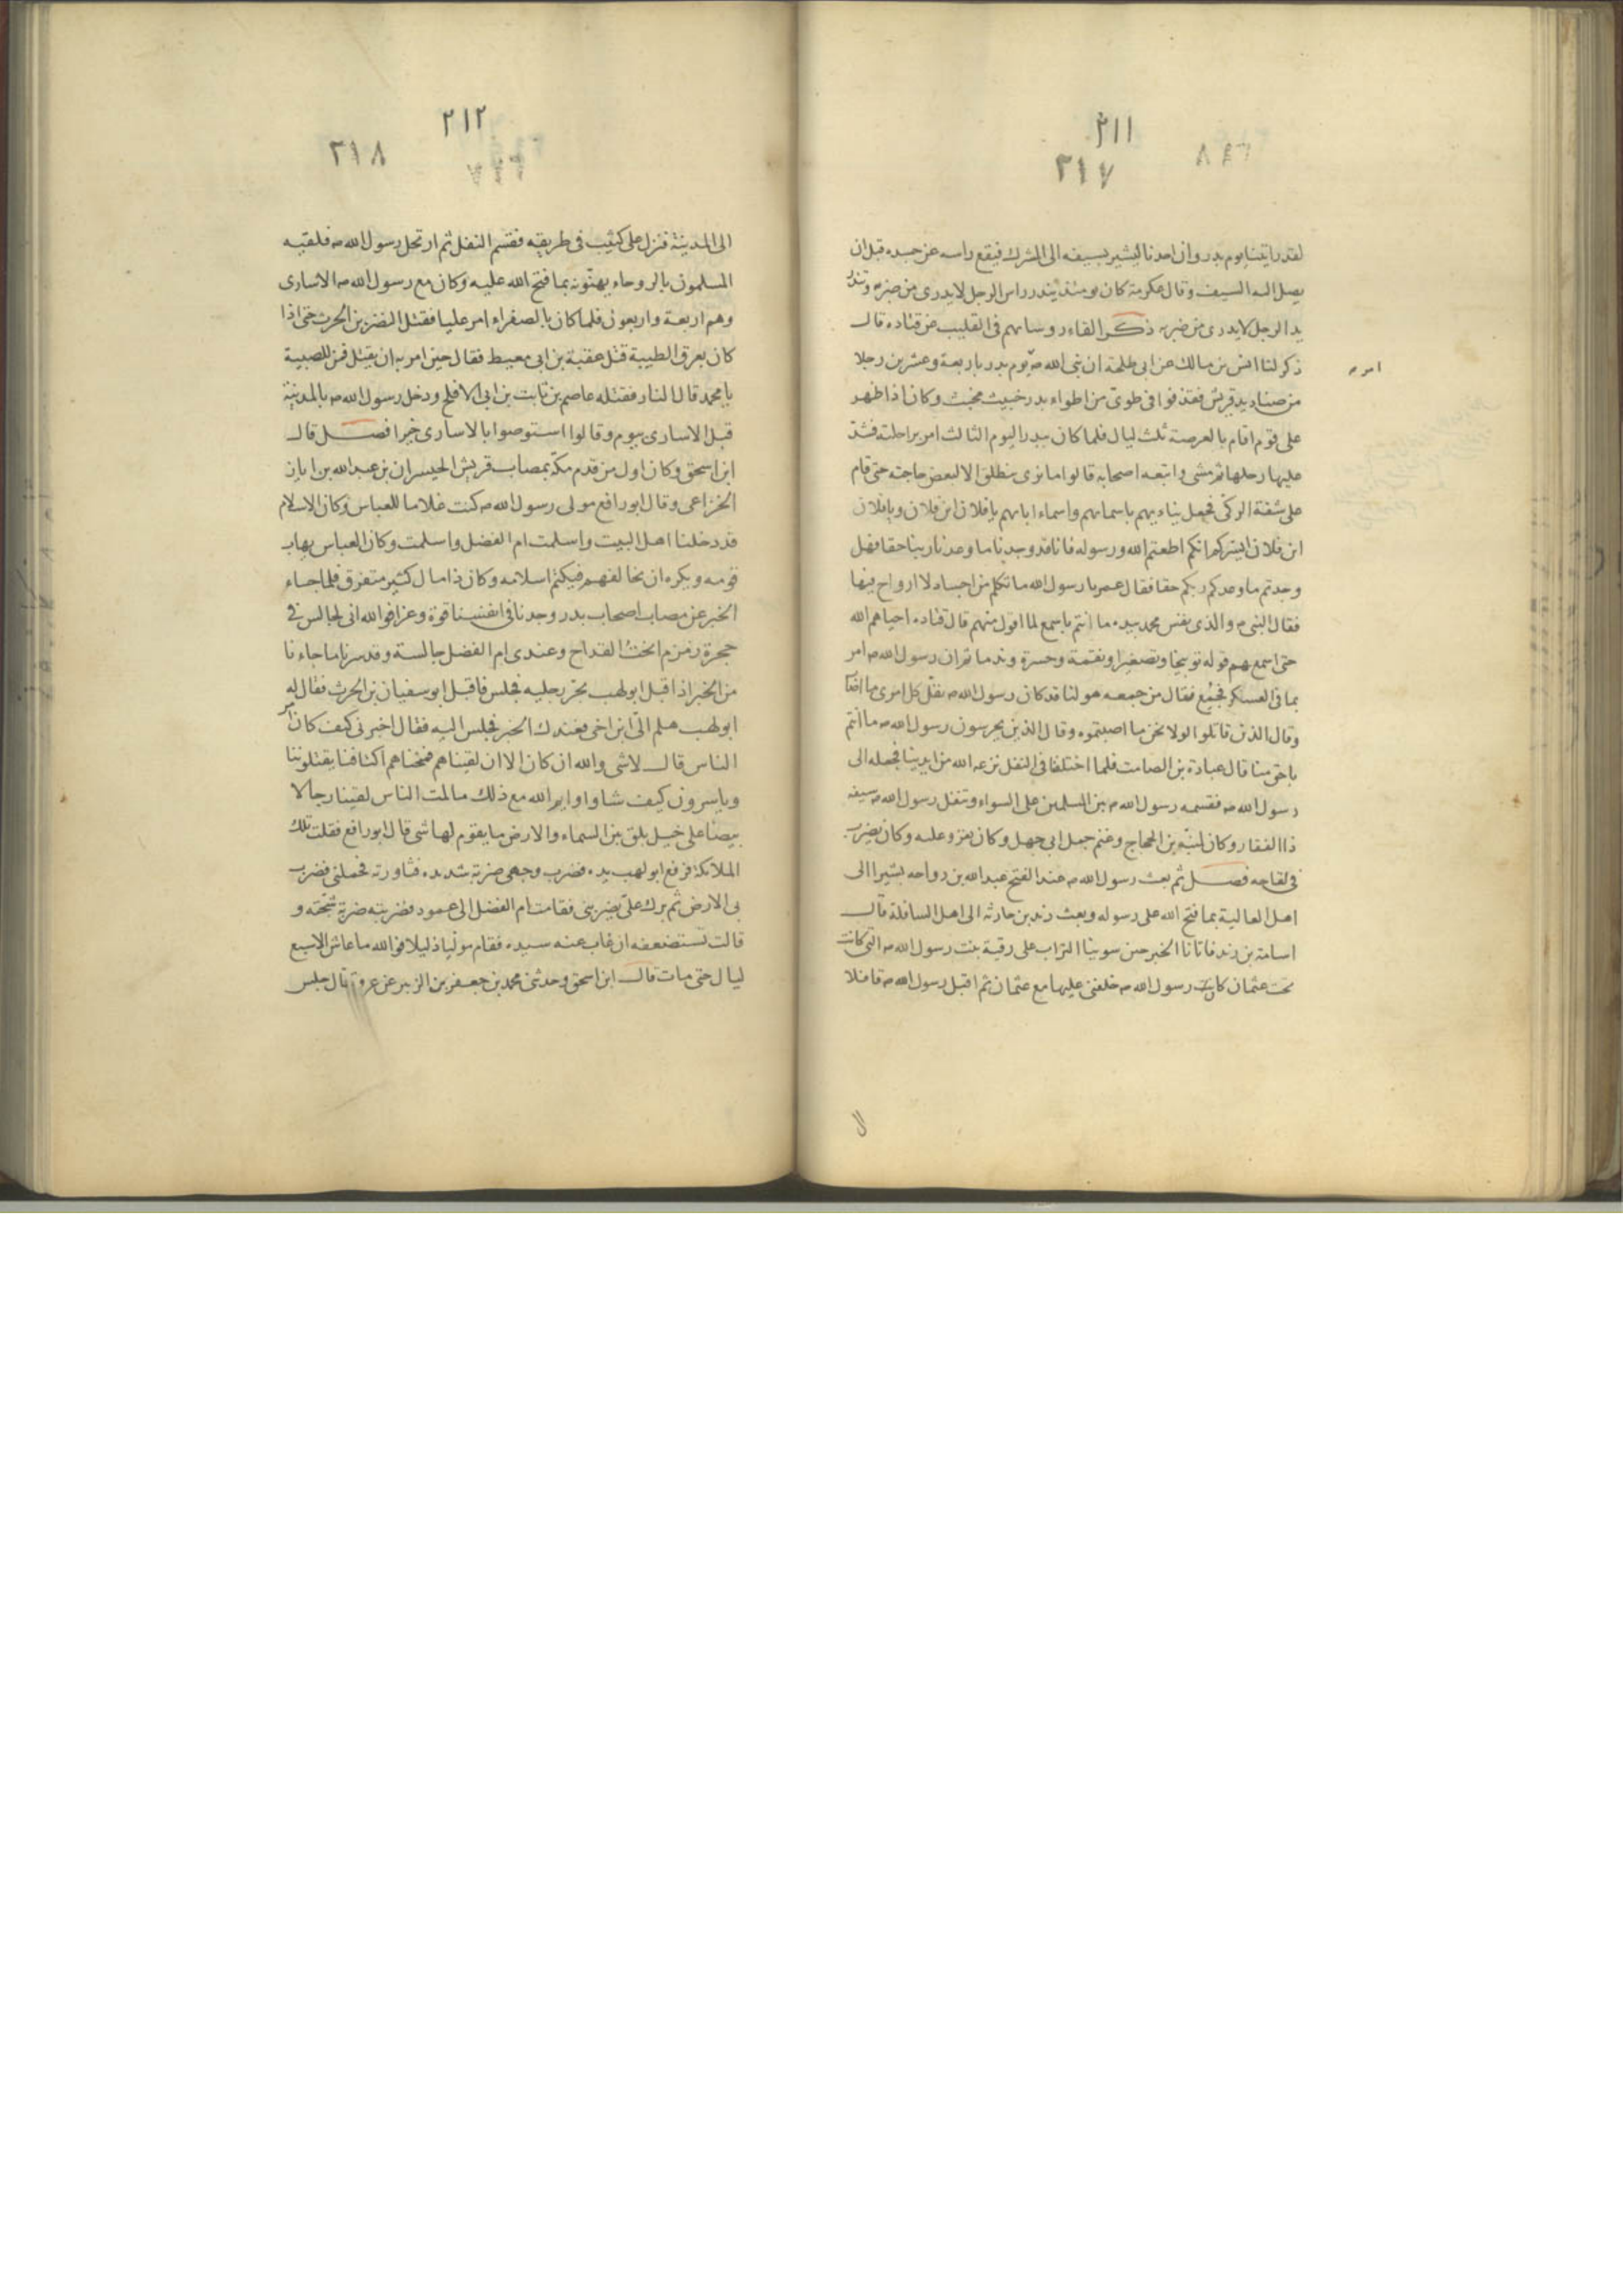 ٢١١
٣١٧
لقد رايتنا يوم بدر وان احدنا ليشير بسيفه الى المشرك فيقع راسه عن جسده قبل ان
يصل اليه السيف وقال عكرمة كان يومئذ يندر راس الرجل لا يدرى من ضربه وتندر
يد الرجل لا يدرى من ضربه ذكر القاء روسائهم فى القليب عن قتاده قال
ذكر لنا انس بن مالك عن ابى طلحة ان نبى الله ص يوم بدر باربعة وعشرين رجلا
امر
من صناديد قريش فقذفوا فى طوى من اطواء بدر خبيث مخبث وكان اذا ظهر
على قوم اقام بالعرصة ثلث ليال فلما كان ببدر اليوم الثالث امر براحلته فشد
عليها رحلها ثم مشى واتبعه اصحابه قالوا ما نرى ينطلق الا لبعض حاجته حتى قام
على شفة الركى فجعل يناديهم باسمائهم واسماء ابائهم يا فلان ابن فلان ويا فلان
ابن فلان ايسركم انكم اطعتم الله ورسوله فانا قد وجدنا ما وعدنا ربنا حقا فهل
وجدتم ما وعدكم ربكم حقا فقال عمر يا رسول الله ما تكلم من اجساد لا ارواح فيها
فقال النبى م والذى نفس محمد بيده ما انتم باسمع لما اقول منهم قال قتاده احياهم الله
حتى اسمعهم قوله توبيخا وتصغيرا ونقمة وحسرة وندما ثم ان رسول الله ص امر
بما فى العسكر فجمع فقال من جمعه هو لنا قد كان رسول الله ص نفل كل امرى ما اصاب
وقال الذين قاتلوا لولا نحن ما اصبتموه وقال الذين يحرسون رسول الله ص ما انتم
باحق منا قال عبادة بن الصامت فلما اختلفنا فى النفل نزعه الله من ايدينا فجعله الى
رسول الله ص فقسمه رسول الله ص بين المسلمين على السواء وتنفل رسول الله ص سيفه
ذا الفقار وكان لمنبه بن الحجاج وغنم جمل ابى جهل وكان يغزو عليه وكان يضرب
فى لقاحه فصل ثم بعث رسول الله ص عند الفتح عبد الله بن رواحه بشيرا الى
اهل العالية بما فتح الله على رسوله وبعث زيد بن حارثه الى اهل السافلة قال
اسامة بن زيد فاتانا الخبر حين سوينا التراب على رقية بنت رسول الله ص التى كانت
تحت عثمان كان رسول الله ص خلفنى عليها مع عثمان ثم اقبل رسول الله ص قافلا
٢١٢
٣١٨
الى المدينة فنزل على كثيب فى طريقه فقسم النفل ثم ارتحل رسول الله ص فلقيه
المسلمون بالروحاء يهنونه بما فتح الله عليه وكان مع رسول الله ص الاسارى
وهم اربعة واربعون فلما كان بالصفراء امر عليا فقتل النضر بن الحرث حتى اذا
كان بعرق الطيبة قتل عقبة بن ابى معيط فقال حين امر به ان يقتل فمن للصبية
يا محمد قال النار فقتله عاصم بن ثابت بن ابى الافلح ودخل رسول الله ص بالمدينة
قبل الاسارى بيوم وقالوا استوصوا بالاسارى خيرا فصل قال
ابن اسحق وكان اول من قدم مكة بمصاب قريش الحيسران بن عبد الله بن اياز
الخزاعى وقال ابو رافع مولى رسول الله ص كنت غلاما للعباس وكان الاسلام
قد دخلنا اهل البيت واسلمت ام الفضل واسلمت وكان العباس يهاب
قومه ويكره ان يخالفهم فيكتم اسلامه وكان ذا مال كثير متفرق فلما جاء
الخبر عن مصاب اصحاب بدر وجدنا فى انفسنا قوة وعزا فوالله انى لجالس فى
حجرة زمزم انحت القداح وعندى ام الفضل جالسة وقد سرنا ما جاءنا
من الخبر اذ اقبل ابو لهب يجر رجليه فجلس فاقبل ابو سفيان بن الحرث فقال له
ابو لهب هلم الى ابن اخى فعندك الخبر فجلس اليه فقال اخبرنى كيف كان امر
الناس قال لا شى والله ان كان الا ان لقيناهم فمنحناهم اكتافنا يقتلوننا
وياسرون كيف شاوا وايم الله مع ذلك ما لمت الناس لقينا رجالا
بيضا على خيل بلق بين السماء والارض ما يقوم لها شى قال ابو رافع فقلت تلك
الملائكة فرفع ابو لهب يده فضرب وجهى ضربة شديده فثاورته فحملنى فضرب
بى الارض ثم برك على يضربنى فقامت ام الفضل الى عمود فضربته ضربة شجته و
قالت تستضعفه ان غاب عنه سيده فقام موليا ذليلا فوالله ما عاش الا سبع
ليال حتى مات قال ابن اسحق وحدثنى محمد بن جعفر بن الزبير عن عروة قال جلس